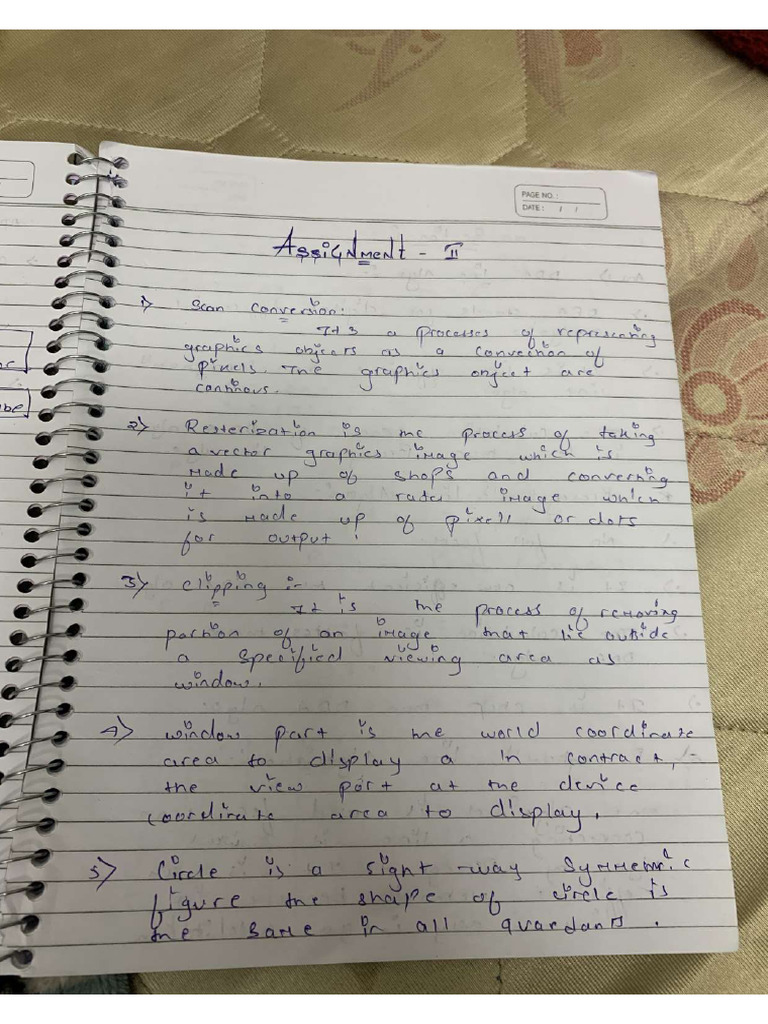 PAGE NO.:
DATE: / /
Assignment - II
1) Scan conversion:
It is a processes of representing
graphics objects as a convection of
pixels. The graphics object are
continous.
2) Resterization is the process of taking
a vector graphics image which is
made up of shaps and converting
it into a rater image which
is made up of pixels or dots
for output.
3) clipping :-
It is the process of removing
portion of an image that lie outside
a specified viewing area as
window.
4) window part is the world coordinate
area to display a in contract,
the view port at the device
coordinate area to display.
5) Circle is a eight way symmetric
figure the shape of circle is
the same in all quardants.
be